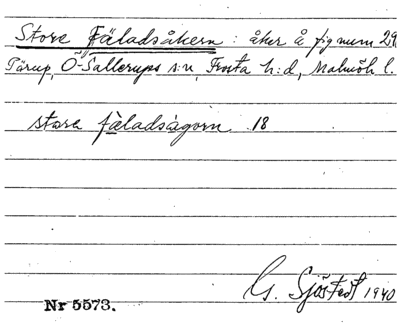 Store Fäladsåkern : åker å fig num 29,
Pärup, Ö-Sallerups s:n, Frosta h:d, Malmöh l.
stora fàladsågorn 18
G. Sjöstedt 1940
Nr 5573.